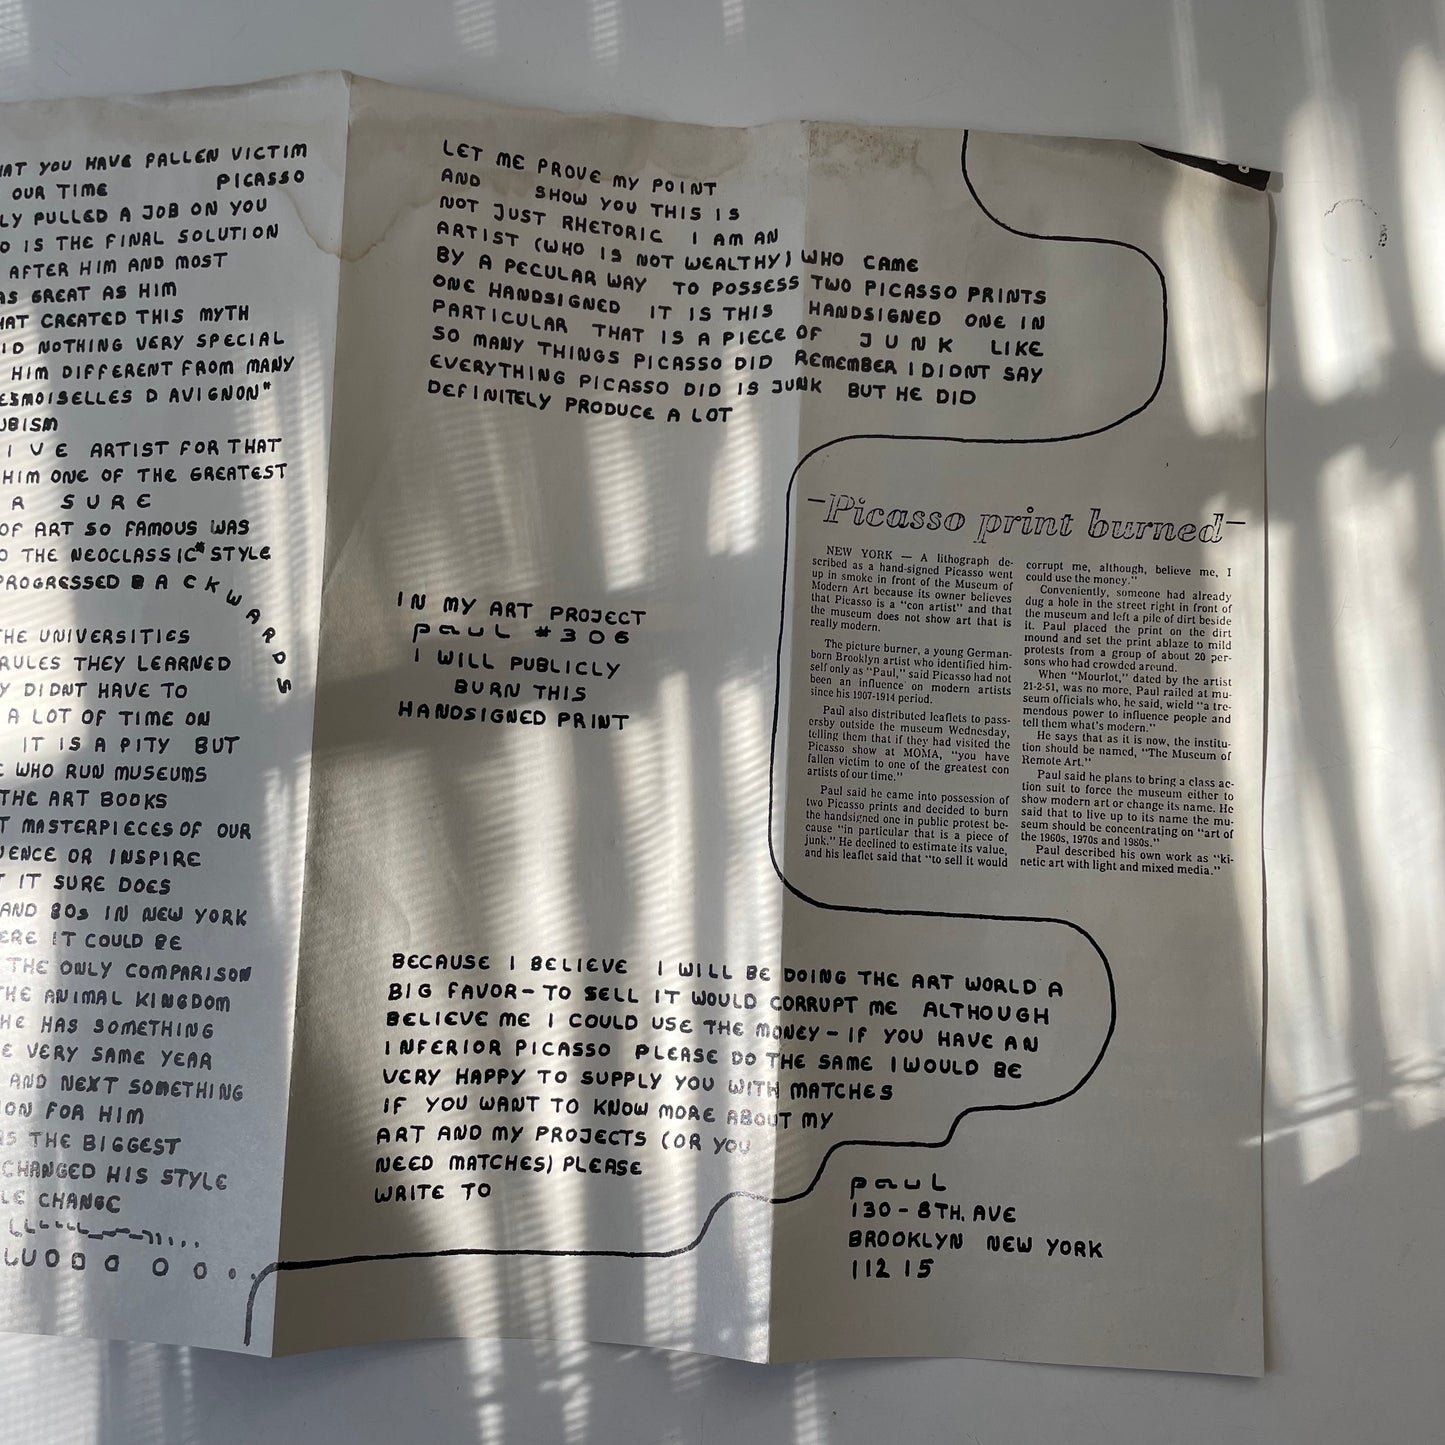 HAT YOU HAVE FALLEN VICTIM
OUR TIME PICASSO
LY PULLED A JOB ON YOU
O IS THE FINAL SOLUTION
AFTER HIM AND MOST
AS GREAT AS HIM
HAT CREATED THIS MYTH
ID NOTHING VERY SPECIAL
HIM DIFFERENT FROM MANY
ESMOISELLES D AVIGNON"
UBISM
I V E ARTIST FOR THAT
HIM ONE OF THE GREATEST
R S U R E
OF ART SO FAMOUS WAS
O THE NEOCLASSIC" STYLE
PROGRESSED B A C K W A R D S
THE UNIVERSITIES
RULES THEY LEARNED
Y DIDNT HAVE TO
A LOT OF TIME ON
IT IS A PITY BUT
E WHO RUN MUSEUMS
THE ART BOOKS
T MASTERPIECES OF OUR
UENCE OR INSPIRE
T IT SURE DOES
AND 80s IN NEW YORK
ERE IT COULD BE
THE ONLY COMPARISON
THE ANIMAL KINGDOM
HE HAS SOMETHING
E VERY SAME YEAR
AND NEXT SOMETHING
ION FOR HIM
AS THE BIGGEST
CHANGED HIS STYLE
LE CHANGE
LET ME PROVE MY POINT
AND SHOW YOU THIS IS
NOT JUST RHETORIC I AM AN
ARTIST (WHO IS NOT WEALTHY) WHO CAME
BY A PECULAR WAY TO POSSESS TWO PICASSO PRINTS
ONE HANDSIGNED IT IS THIS HANDSIGNED ONE IN
PARTICULAR THAT IS A PIECE OF J U N K LIKE
SO MANY THINGS PICASSO DID REMEMBER I DIDNT SAY
EVERYTHING PICASSO DID IS JUNK BUT HE DID
DEFINITELY PRODUCE A LOT
IN MY ART PROJECT
paul #306
I WILL PUBLICLY
BURN THIS
HANDSIGNED PRINT
-Picasso print burned-
NEW YORK — A lithograph de-
scribed as a hand-signed Picasso went
up in smoke in front of the Museum of
Modern Art because its owner believes
that Picasso is a "con artist" and that
the museum does not show art that is
really modern.
The picture burner, a young German-
born Brooklyn artist who identified him-
self only as "Paul," said Picasso had not
been an influence on modern artists
since his 1907-1914 period.
Paul also distributed leaflets to pass-
ersby outside the museum Wednesday,
telling them that if they had visited the
Picasso show at MOMA, "you have
fallen victim to one of the greatest con
artists of our time."
Paul said he came into possession of
two Picasso prints and decided to burn
the handsigned one in public protest be-
cause "in particular that is a piece of
junk." He declined to estimate its value,
and his leaflet said that "to sell it would
corrupt me, although, believe me, I
could use the money."
Conveniently, someone had already
dug a hole in the street right in front of
the museum and left a pile of dirt beside
it. Paul placed the print on the dirt
mound and set the print ablaze to mild
protests from a group of about 20 per-
sons who had crowded around.
When "Mourlot," dated by the artist
21-2-51, was no more, Paul railed at mu-
seum officials who, he said, wield "a tre-
mendous power to influence people and
tell them what's modern."
He says that as it is now, the institu-
tion should be named, "The Museum of
Remote Art."
Paul said he plans to bring a class ac-
tion suit to force the museum either to
show modern art or change its name. He
said that to live up to its name the mu-
seum should be concentrating on "art of
the 1960s, 1970s and 1980s."
Paul described his own work as "ki-
netic art with light and mixed media."
BECAUSE I BELIEVE I WILL BE DOING THE ART WORLD A
BIG FAVOR - TO SELL IT WOULD CORRUPT ME ALTHOUGH
BELIEVE ME I COULD USE THE MONEY - IF YOU HAVE AN
INFERIOR PICASSO PLEASE DO THE SAME I WOULD BE
VERY HAPPY TO SUPPLY YOU WITH MATCHES
IF YOU WANT TO KNOW MORE ABOUT MY
ART AND MY PROJECTS (OR YOU
NEED MATCHES) PLEASE
WRITE TO
paul
130-8TH. AVE
BROOKLYN NEW YORK
11215